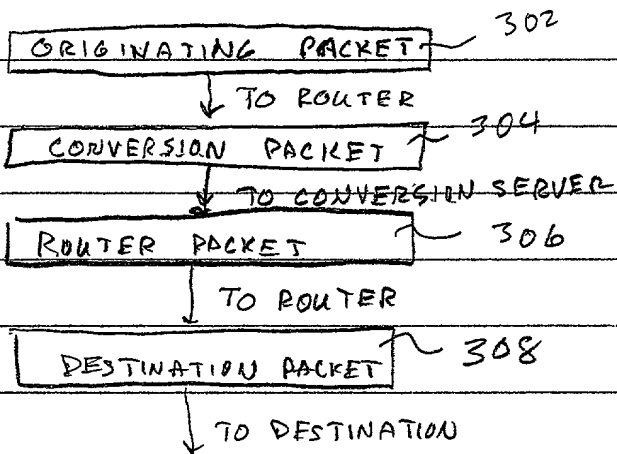 302
ORIGINATING PACKET
TO ROUTER
304
CONVERSION PACKET
TO CONVERSION SERVER
ROUTER PACKET
306
TO ROUTER
308
DESTINATION PACKET
TO DESTINATION